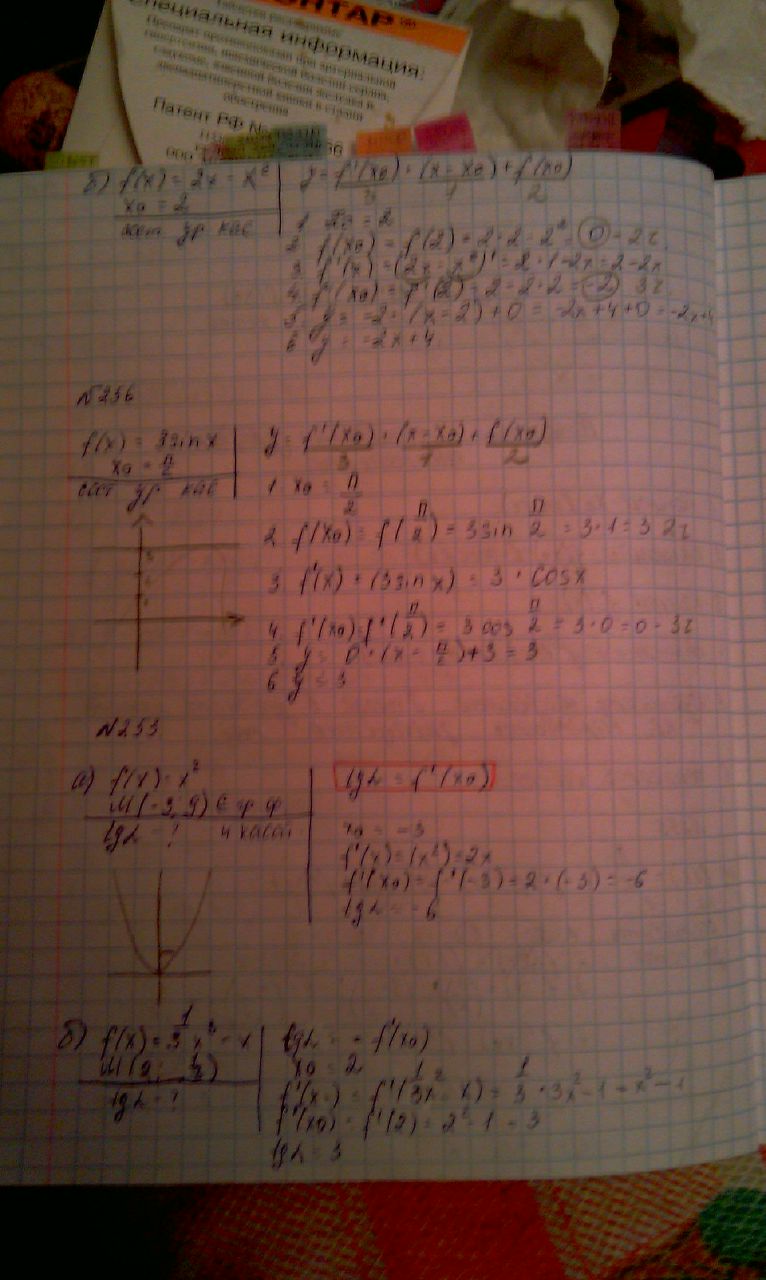 НТАР
Специальная информация:
Патент РФ №
б) f(x) = 2x - x²
x₀ = 2
ур кас
y = f'(x₀) · (x - x₀) + f(x₀)
3 1 2
1 x₀ = 2
2 f(x₀) = f(2) = 2 · 2 - 2² = 0 - 2г
3 f'(x) = (2x - x²)' = 2 · 1 - 2x = 2 - 2x
4 f'(x₀) = f'(2) = 2 - 2 · 2 = -2 3г
5 y = -2 · (x - 2) + 0 = -2x + 4 + 0 = -2x + 4
6 y = -2x + 4
№256
f(x) = 3sin x
x₀ = π/2
сост ур кас
y = f'(x₀) · (x - x₀) + f(x₀)
3 1 2
1 x₀ = π/2
2 f(x₀) = f(π/2) = 3sin π/2 = 3 · 1 = 3 2г
3 f'(x) = (3sin x) = 3 · cos x
4 f'(x₀) = f'(π/2) = 3 cos π/2 = 3 · 0 = 0 - 3г
5 y = 0 · (x - π/2) + 3 = 3
6 y = 3
№253
а) f(x) = x²
M(-3, 9) ∈ гр ф
tgα - ? и касат
tgα = f'(x₀)
x₀ = -3
f'(x) = (x²) = 2x
f'(x₀) = f'(-3) = 2 · (-3) = -6
tgα = -6
б) f(x) = 1/3 x³ - x
M(2;
tgα - ?
tgα = f'(x₀)
x₀ = 2
f'(x) = f'(1/3 x³ - x) = 1/3 · 3x² - 1 = x² - 1
f'(x₀) = f'(2) = 2² - 1 = 3
tgα = 3